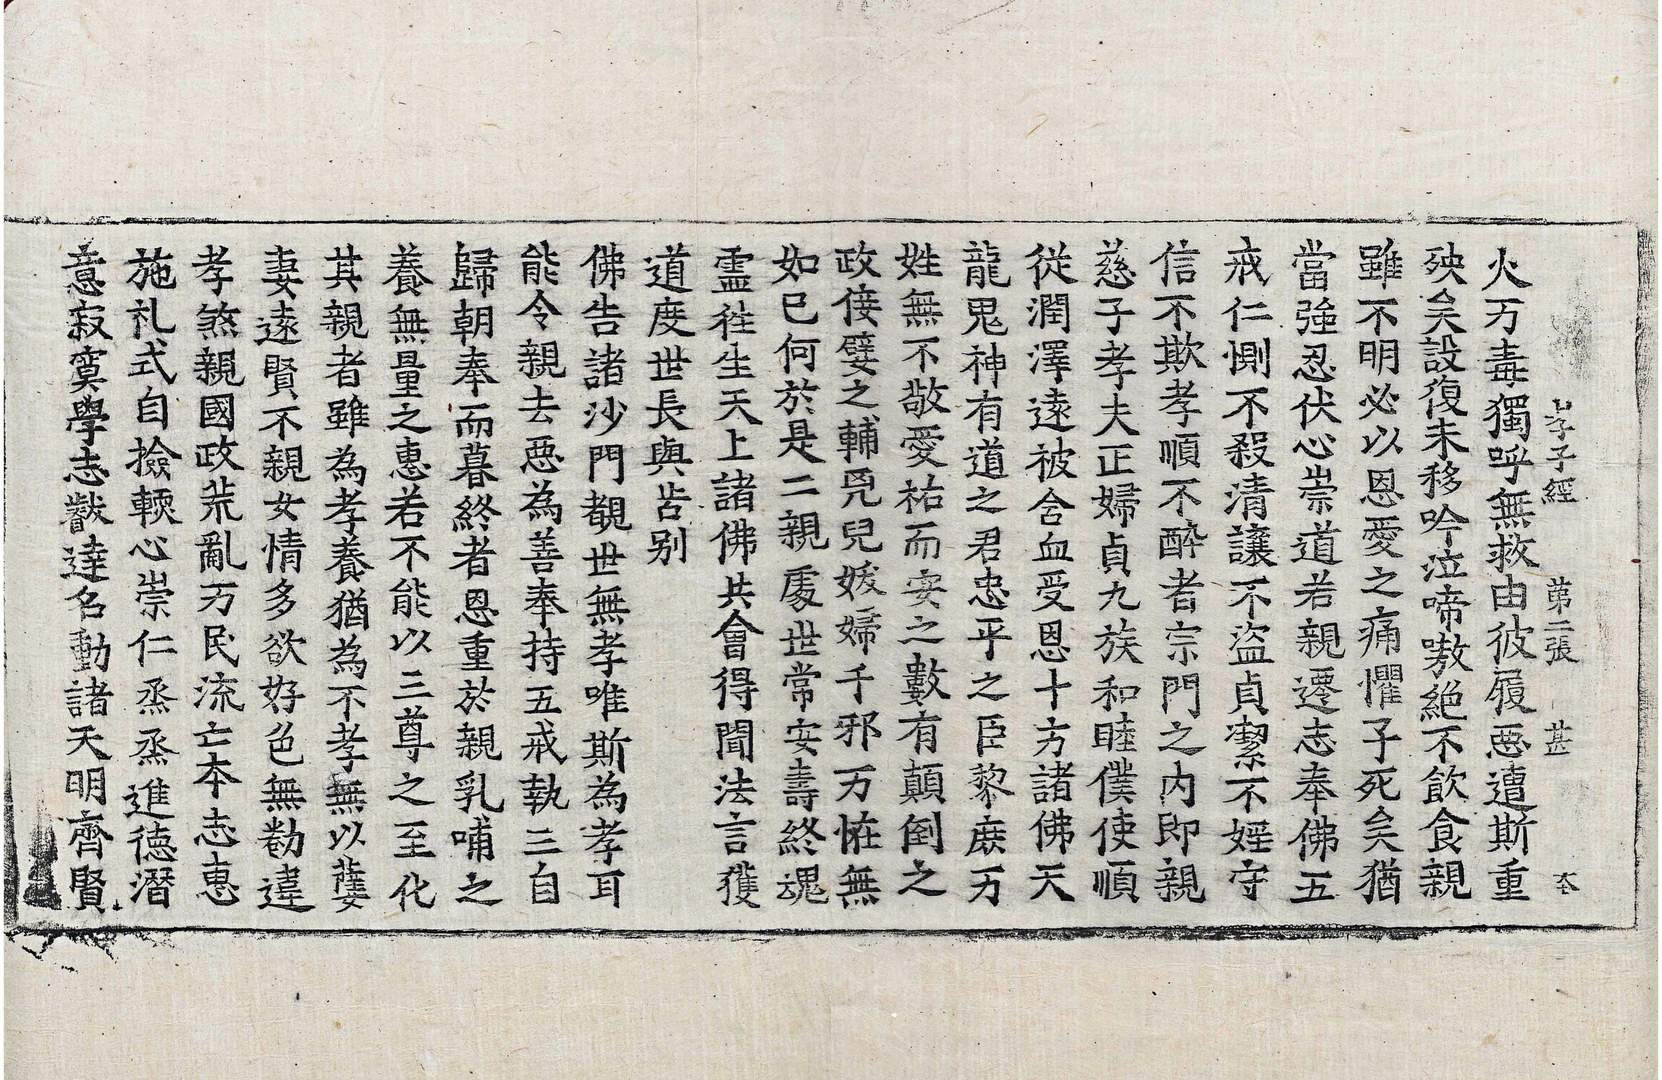 孝子經 第二張 甚
火万毒獨呼無救由彼履惡遭斯重
殃矣設復未移吟泣啼嗷絕不飲食親
雖不明必以恩愛之痛懼子死矣猶
當強忍伏心崇道若親遷志奉佛五
戒仁惻不殺清讓不盜貞潔不婬守
信不欺孝順不醉者宗門之內即親
慈子孝夫正婦貞九族和睦僕使順
從潤澤遠被含血受恩十方諸佛天
龍鬼神有道之君忠平之臣黎庶万
姓無不敬愛祐而安之數有顛倒之
政佞嬖之輔兇兒妭婦千邪万恠無
如已何於是二親處世常安壽終魂
靈徃生天上諸佛共會得聞法言獲
道度世長與苦别
佛告諸沙門覩世無孝唯斯為孝耳
能令親去惡為善奉持五戒執三自
歸朝奉而暮終者恩重於親乳哺之
養無量之惠若不能以三尊之至化
其親者雖為孝養猶為不孝無以㜢
妻遠賢不親女情多欲好色無勌違
孝煞親國政荒亂万民流亡本志惠
施礼式自撿軟心崇仁烝烝進德潛
意寂寞學志叡達名動諸天明齊賢